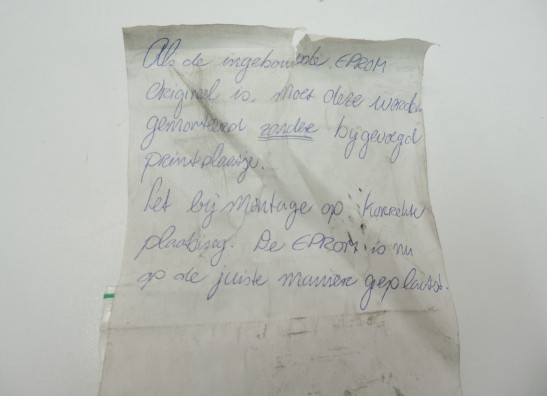 Als de ingebouwde EPROM
origineel is, moet deze worden
gemonteerd zonder bijgevoegd
printplaatje.
Let bij montage op korrekte
plaatsing. De EPROM is nu
op de juiste manier geplaatst.